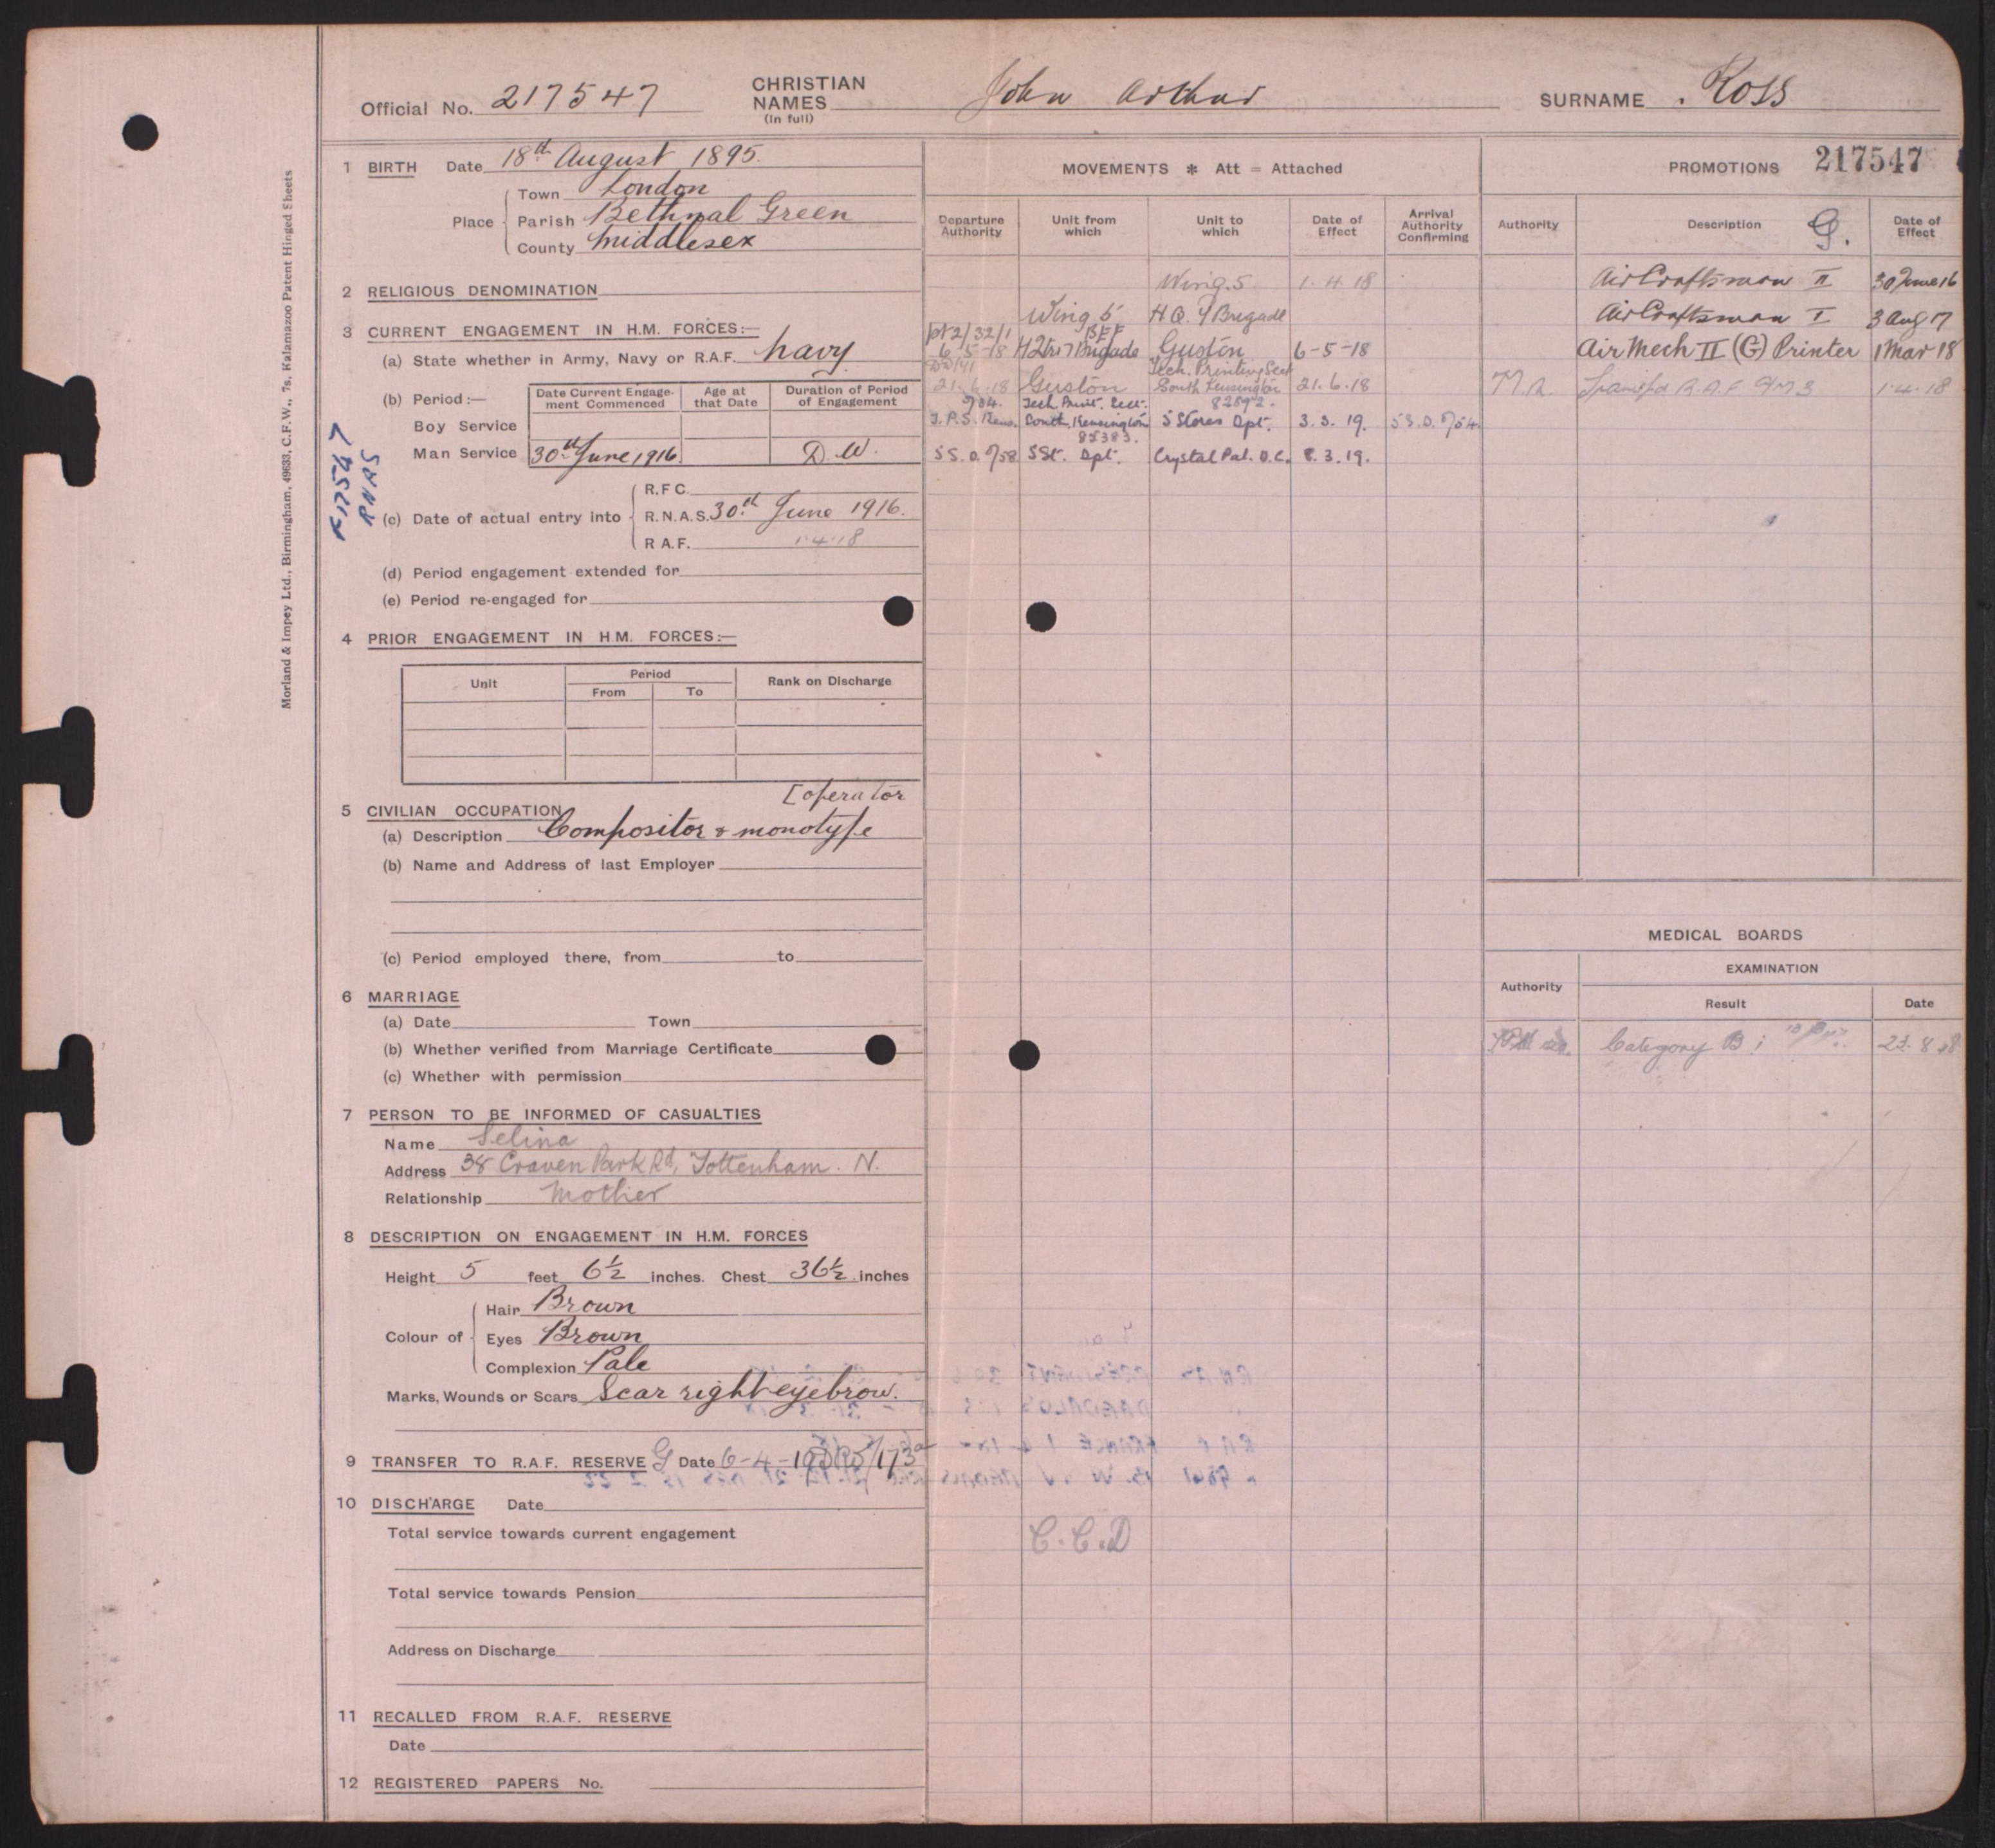 Official No. 217547 CHRISTIAN NAMES (In full) John Arthur SURNAME Ross
1 BIRTH Date 18th August 1895.
Place Town London
Parish Bethnal Green
County Middlesex
2 RELIGIOUS DENOMINATION
3 CURRENT ENGAGEMENT IN H.M. FORCES:—
(a) State whether in Army, Navy or R.A.F. Navy
(b) Period:— Date Current Engagement Commenced Age at that Date Duration of Period of Engagement
Boy Service
Man Service 30th June 1916. D.W.
F17547
RNAS
(c) Date of actual entry into R.F.C.
R.N.A.S. 30th June 1916.
R.A.F. 1.4.18
(d) Period engagement extended for
(e) Period re-engaged for
4 PRIOR ENGAGEMENT IN H.M. FORCES:—
Unit Period Rank on Discharge
From To
5 CIVILIAN OCCUPATION [operator
(a) Description Compositor & monotype
(b) Name and Address of last Employer
(c) Period employed there, from to
6 MARRIAGE
(a) Date Town
(b) Whether verified from Marriage Certificate
(c) Whether with permission
7 PERSON TO BE INFORMED OF CASUALTIES
Name Selina
Address 38 Craven Park Rd, Tottenham. N.
Relationship Mother
8 DESCRIPTION ON ENGAGEMENT IN H.M. FORCES
Height 5 feet 6½ inches. Chest 36½ inches
Colour of Hair Brown
Eyes Brown
Complexion Pale
Marks, Wounds or Scars Scar right eyebrow.
9 TRANSFER TO R.A.F. RESERVE G Date 6-4-19
10 DISCHARGE Date
Total service towards current engagement
Total service towards Pension
Address on Discharge
11 RECALLED FROM R.A.F. RESERVE
Date
12 REGISTERED PAPERS No.
MOVEMENTS * Att = Attached
Departure Authority Unit from which Unit to which Date of Effect Arrival Authority Confirming
Wing.5. 1.4.18
Wing 5 H.Q. 7 Brigade
BEF
6-5-18 7 Brigade Guston 6-5-18
Tech. Printing Sect
21.6.18 Guston South Kensington 21.6.18
Tech. Print. Sect. 82892.
South Kensington S Stores Dpt. 3.3.19. S.S.D.
85383.
S.S.D. S St. Dpt. Crystal Pal. D.C. 8.3.19.
C.C.D
PROMOTIONS 217547
Authority Description G. Date of Effect
AirCraftsman II 30 June 16
AirCraftsman I 3 Aug 17
Air Mech II (G) Printer 1 Mar 18
M.A. R.A.F. 1.4.18
MEDICAL BOARDS
EXAMINATION
Authority Result Date
Category B i
Morland & Impey Ltd., Birmingham. 49633, C.F.W., 7s, Kalamazoo Patent Hinged Sheets